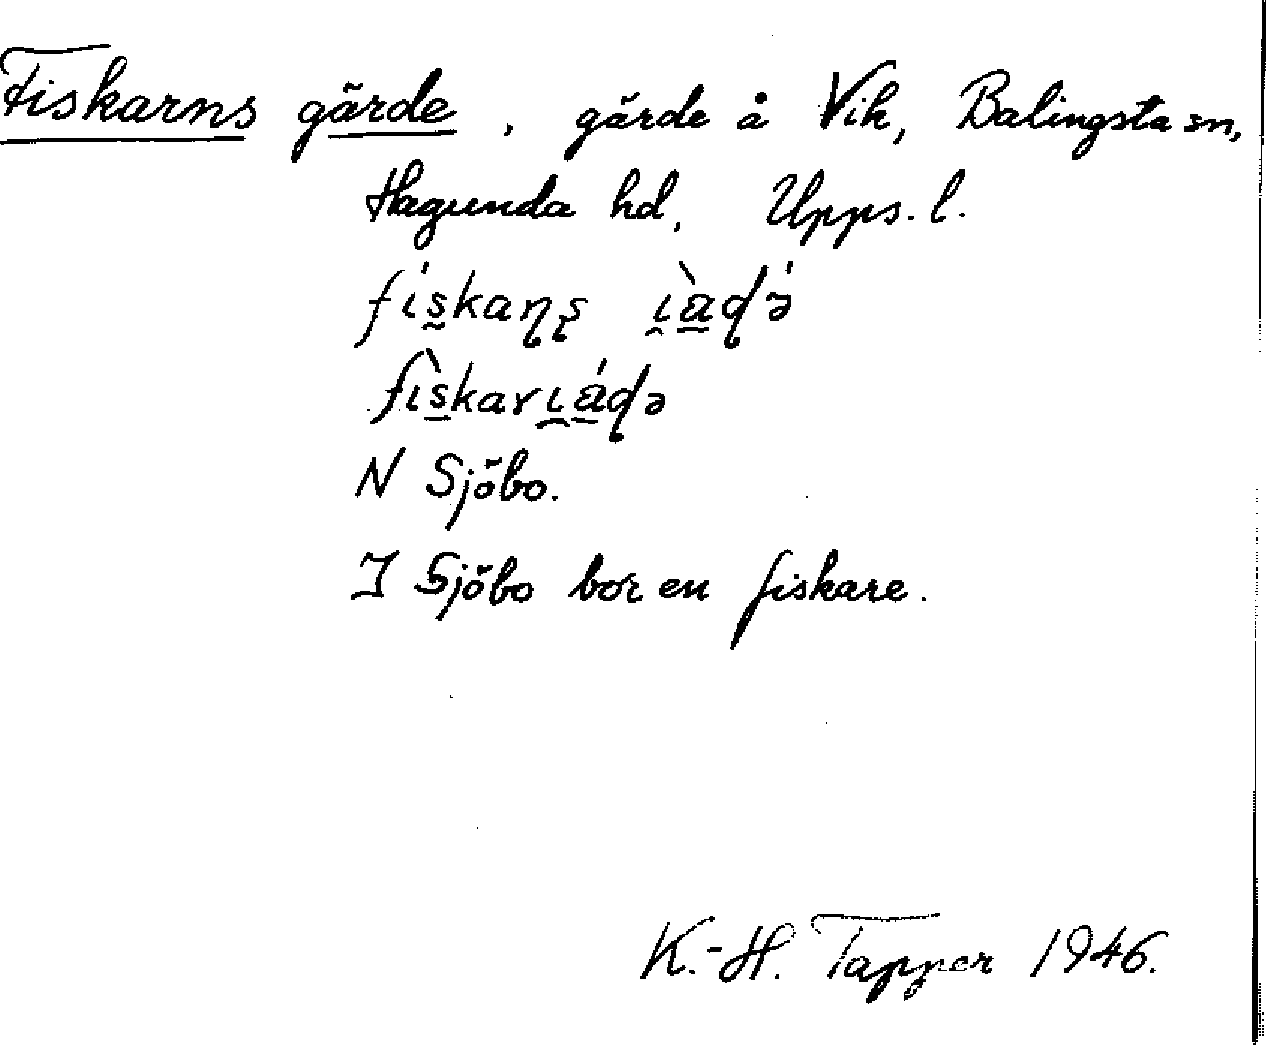 Fiskarns gärde, gärde å Vik, Balingsta sn,
Hagunda hd, Upps. l.
fɩ́s̰kaɳʂ ɩ̯̀a̱ɖə́
fɩ̀s̱karɩ̯á̱ɖə
N Sjöbo.
I Sjöbo bor en fiskare.
K.-H. Tapper 1946.